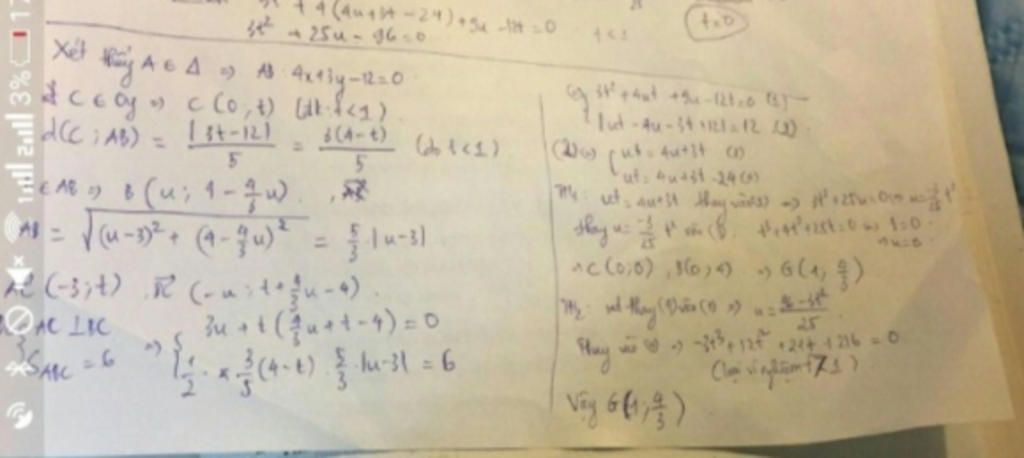 + 4(4u+3t-24)+9u-12t=0
3t² + 25u - 96=0
t<1
t=0
Xét thấy A ∈ Δ ⇒ AB: 4x+3y-12=0
C ∈ Oy ⇒ C(0,t) (đk: t<1)
d(C; AB) = |3t-12|/5 = 3(4-t)/5 (do t<1)
∈ AB ⇒ B(u; 4-4/3u)
AB = √((u-3)² + (4-4/3u)²) = 5/3 |u-3|
AC (-3; t), BC (-u; t+4/3u-4)
AC ⊥ BC
S_ABC = 6
⇒ { 3u + t(4/3u+t-4) = 0
1/2 · 3/5(4-t) · 5/3 · |u-3| = 6
3t² + 4ut + 9u - 12t = 0 (1)
|ut-4u-3t+12| = 12 (2)
(2) ⇔ ut = 4u+3t (3)
ut = 4u+3t-24 (4)
TH1: ut = 4u+3t thay vào (1) ⇒ 3t²+25u=0 ⇔ u=-3/25 t²
thay u = -3/25 t² vào (3)
⇒ C(0;0), B(0;4) ⇒ G(1; 4/3)
TH2: thay (4) vào (1) ⇒ u = (96-3t²)/25
thay vào (4) ⇒ -3t³+12t²+21t+216 = 0
(loại vì nghiệm t>1)
Vậy G(1; 4/3)
3%